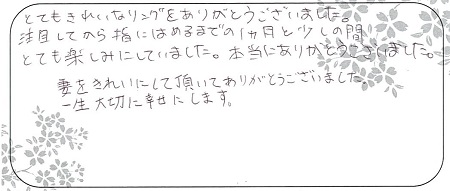 とてもきれいなリングをありがとうございました。
注目してから指にはめるまでの1ヵ月と少しの間
とても楽しみにしていました。本当にありがとうございました。
妻をきれいにして頂いてありがとうございました。
一生大切に幸せにします。